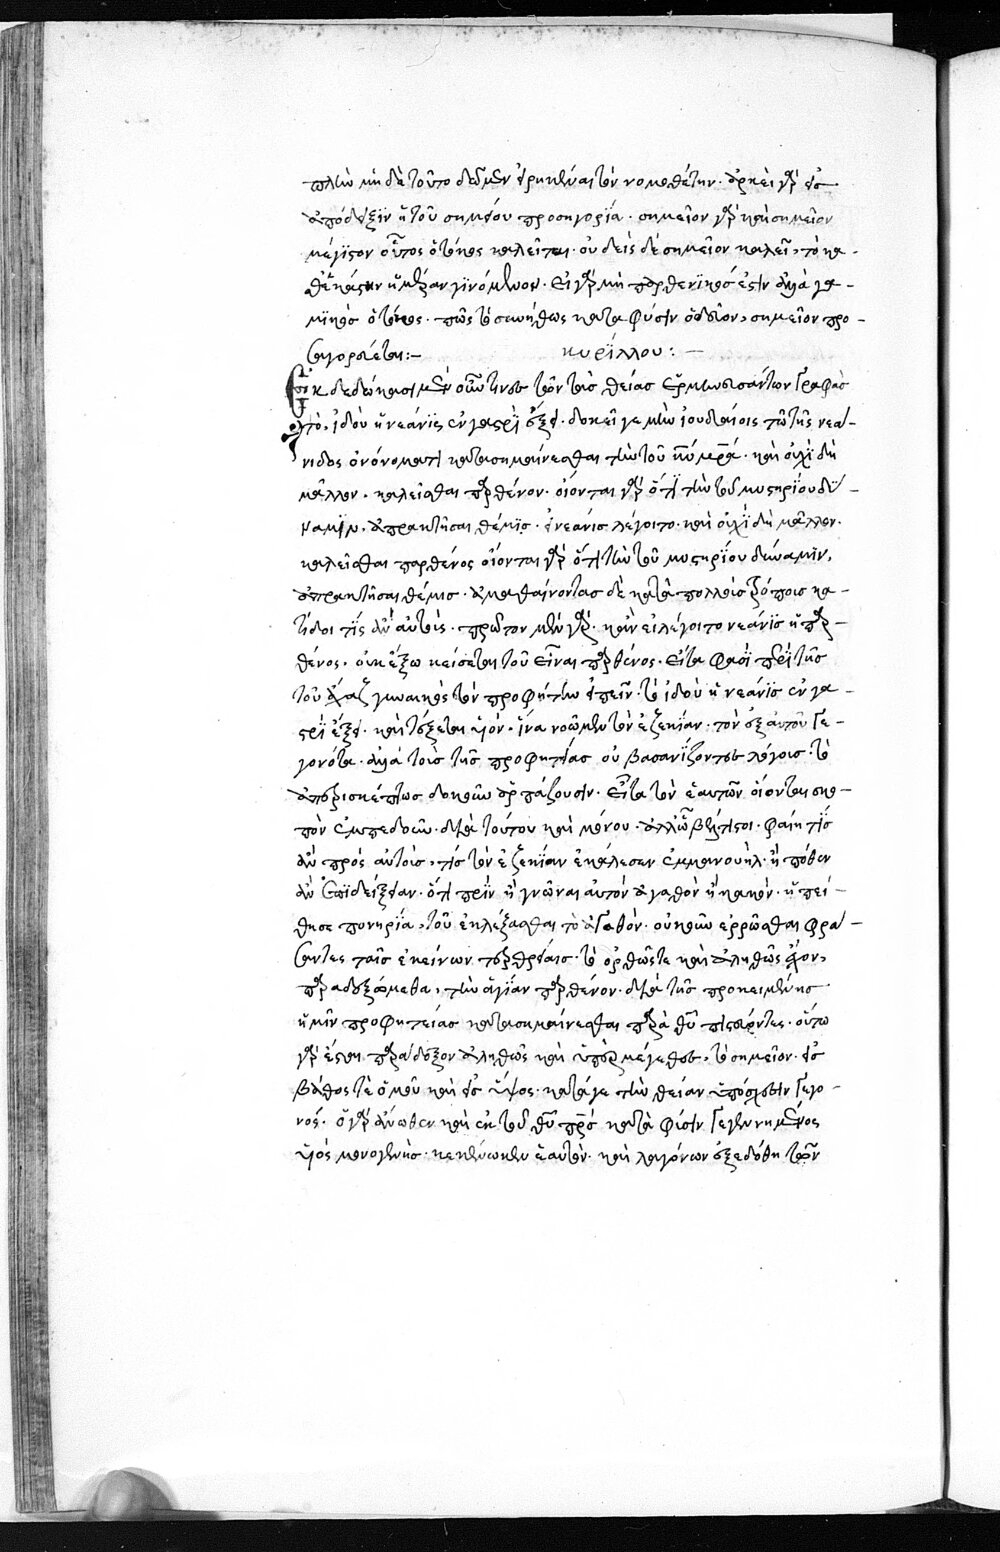 πλὴν μηδὲ τοῦτο δεδμεν εἰρηκέναι τὸν νομοθέτην· ἀρκεῖ γὰρ εἰς
ἀπόδειξιν ἡ τοῦ σημείου προσηγορία· σημεῖον γὰρ καὶ σημεῖον
μέγιστον οὗτος ὁ τόκος καλεῖται· οὐδεὶς δὲ σημεῖον καλεῖ, τὸ κα-
θ' ἑκάστην ἡμέραν γινόμενον· εἰ γὰρ μὴ παρθενικός ἐστιν ἀλλὰ γα-
μικὸς ὁ τόκος· πῶς ὁ συνήθως κατὰ φύσιν ὁδεύων, σημεῖον προ-
σαγορεύεται:— κυρίλλου:—
ἐκδεδώκασι μὲν οὖν τινὲς τῶν τὰς θείας ἑρμηνευσάντων γραφὰς
τὸ, ἰδοὺ ἡ νεάνις ἐν γαστρὶ ἕξει· δοκεῖ γε μὴν ἰουδαίοις τῷ τῆς νεά-
νιδος ὀνόματι κατασημαίνεσθαι τὴν τοῦ κυ μρα· καὶ οὐχὶ δὴ
μᾶλλον, καλεῖσθαι παρθένον· οἴονται γὰρ ὅτι τὴν τοῦ μυστηρίου δύ-
ναμιν, ἀπρακτῆσαι θέμις· εἰ νεάνις λέγοιτο· καὶ οὐχὶ δὴ μᾶλλον·
καλεῖσθαι παρθένος οἴονται γὰρ ὅτι τὴν τοῦ μυστηρίου δύναμιν,
ἀπρακτῆσαι θέμις· ἀμαθαίνοντας δὲ κατὰ πολλοὺς τρόπους κα-
τίδοι τίς ἂν αὐτούς· πρῶτον μὲν γὰρ· κἂν εἰ λέγοιτο νεάνις ἡ παρ-
θένος· οὐκ ἔξω κείσεται τοῦ εἶναι παρθένος· εἶτα φασὶ περὶ τῆς
τοῦ ἄχαζ γυναικὸς τὸν προφήτην εἰπεῖν· τὸ ἰδοὺ ἡ νεάνις ἐν γα-
στρὶ ἕξει· καὶ τέξεται υἱόν· ἵνα νοῶμεν τὸν ἐζεκίαν· τὸν ἐξ αὐτοῦ γε-
γονότα· ἀλλὰ τοὺς τῆς προφητείας οὐ βασανίζοντες λόγους· τὸ
ἀπερισκέπτως δοκοῦν ἁρπάζουσιν· εἶτα τὸν ἑαυτῶν οἴονται σκο-
πὸν ἐμπεδοῦν· διὰ τούτου καὶ μόνου· ἀλλ' ὦ βέλτιστοι· φαίη τίς
ἂν πρὸς αὐτούς, τίς τὸν ἐζεκίαν ἐκάλεσεν ἐμμανουήλ· ἢ πόθεν
ἂν ἐπιδείξειαν· ὅτι πρὶν ἢ γνῶναι αὐτὸν ἀγαθὸν ἢ κακόν· ἠπεί-
θησε πονηρία, τοῦ ἐκλέξασθαι τὸ ἀγαθόν· οὐκοῦν ἐρρῶσθαι φρά-
σαντες ταῖς ἐκείνων τερθρείαις· τὸ ὀρθῶς τε καὶ ἀληθῶς ἔχον,
παραδεξόμεθα, τὴν ἁγίαν παρθένον· διὰ τῆς προκειμένης
ἡμῖν προφητείας κατασημαίνεσθαι παρὰ θυ πιστεύοντες· οὕτω
γὰρ ἔσται παράδοξον ἀληθῶς καὶ ὑπέρμέγεθες, τὸ σημεῖον· εἰς
βάθος τὲ ὁμοῦ καὶ εἰς ὕψος· κατάγε τὴν θείαν ὑπόσχεσιν γεγο-
νός· ὁ γὰρ ἄνωθεν καὶ ἐκ τοῦ θυ πρς κατὰ φύσιν γεγεννημένος
υἱὸς μονογενής· κεκένωκεν ἑαυτόν· καὶ λαγόνων ἐξεδόθη τῶν